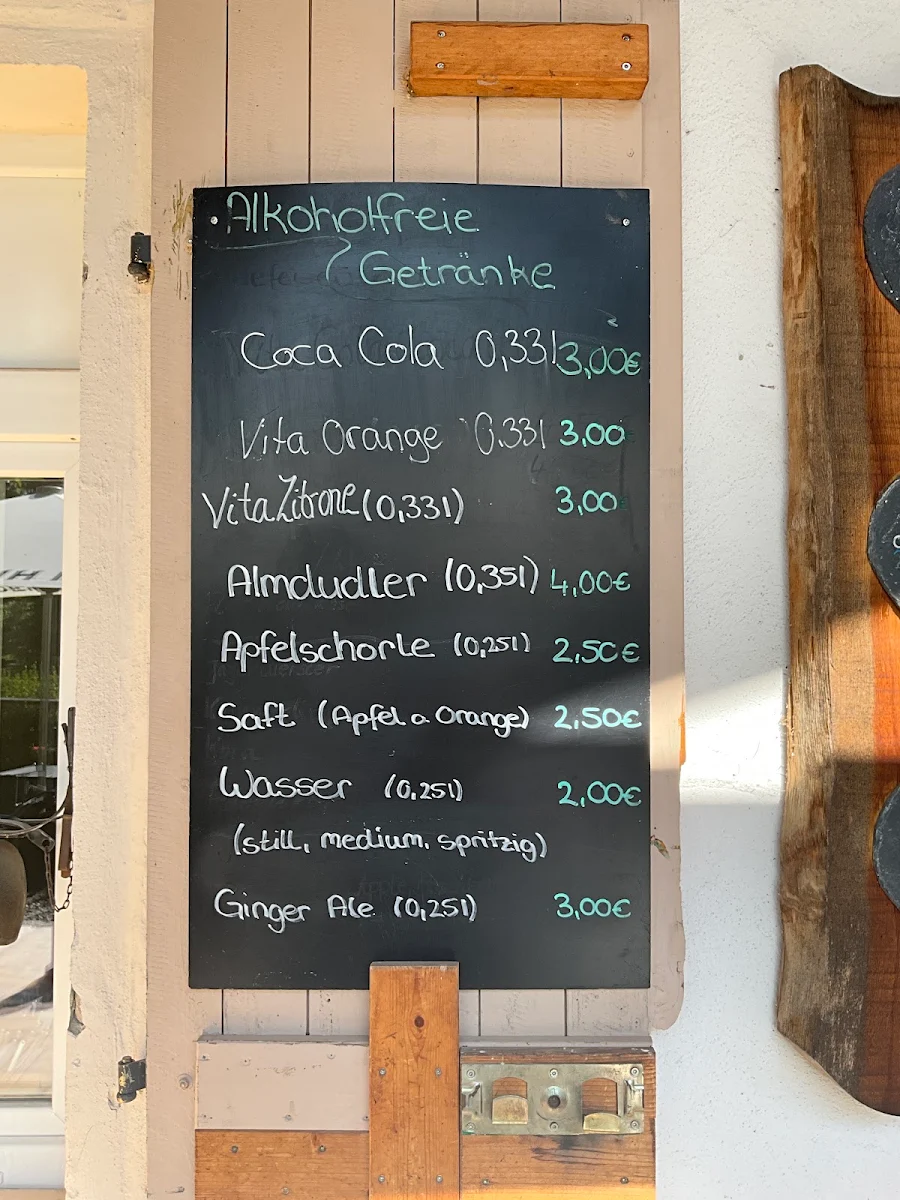 Alkoholfreie
Getränke
Coca Cola 0,33l 3,00€
Vita Orange 0.33l 3,00
Vita Zitrone (0,33l) 3,00
Almdudler (0,35l) 4,00€
Apfelschorle (0,25l) 2,50€
Saft (Apfel o Orange) 2,50€
Wasser (0,25l) 2,00€
(still, medium, spritzig)
Ginger Ale (0,25l) 3,00€